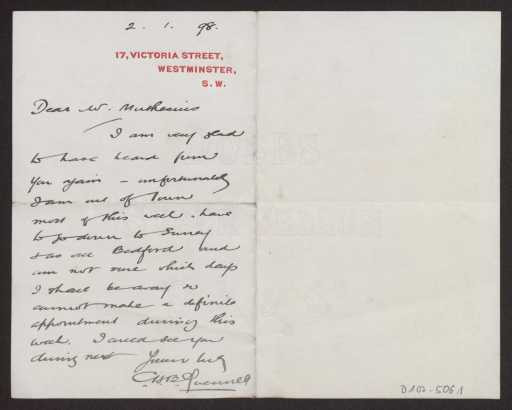 2. 1. 98.
17, VICTORIA STREET,
WESTMINSTER,
S. W.
Dear Mr. Muthesius
I am very glad
to have heard from
you again – unfortunately
I am out of Town
most of this week. have
to go down to Surrey
& also Bedford and
am not sure which days
I shall be away so
cannot make a definite
appointment during this
week. I could see you
during next Yours truly
CHB Quennell
D 102-5061